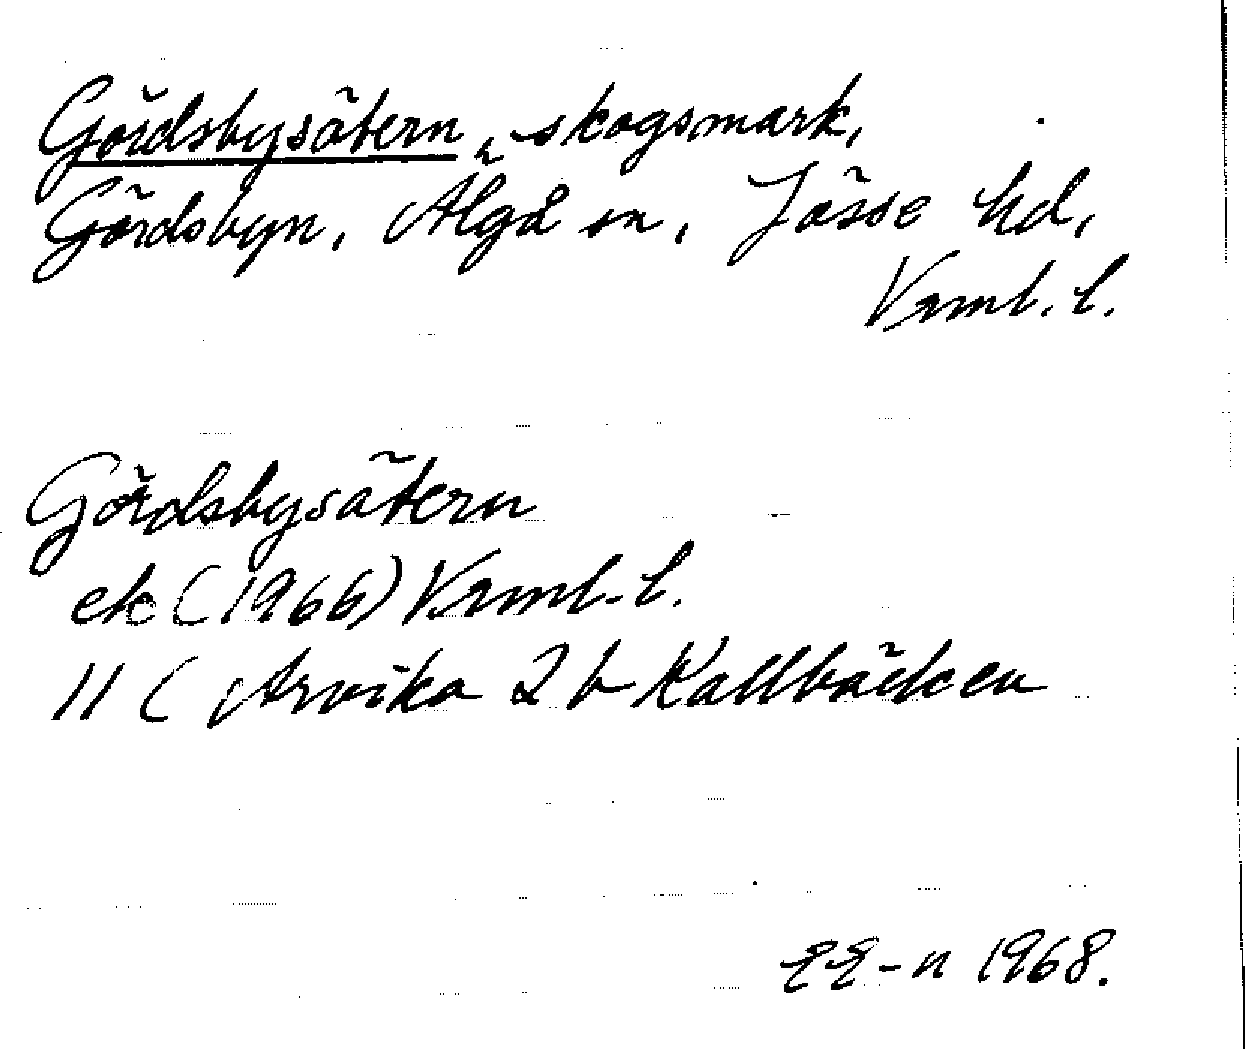 Gördsbysätern, skogsmark,
Gördsbyn, Älgå sn, Jösse hd,
Vrml. l.
Gördsbysätern
ek (1966) Vrml. l.
11 C Arvika 2 b Kallbäcken
EE-n 1968.